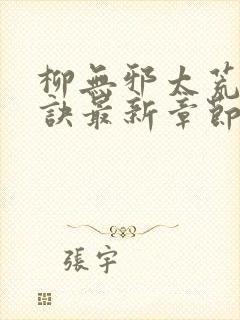 柳無邪太荒
訣最新章節
張宇